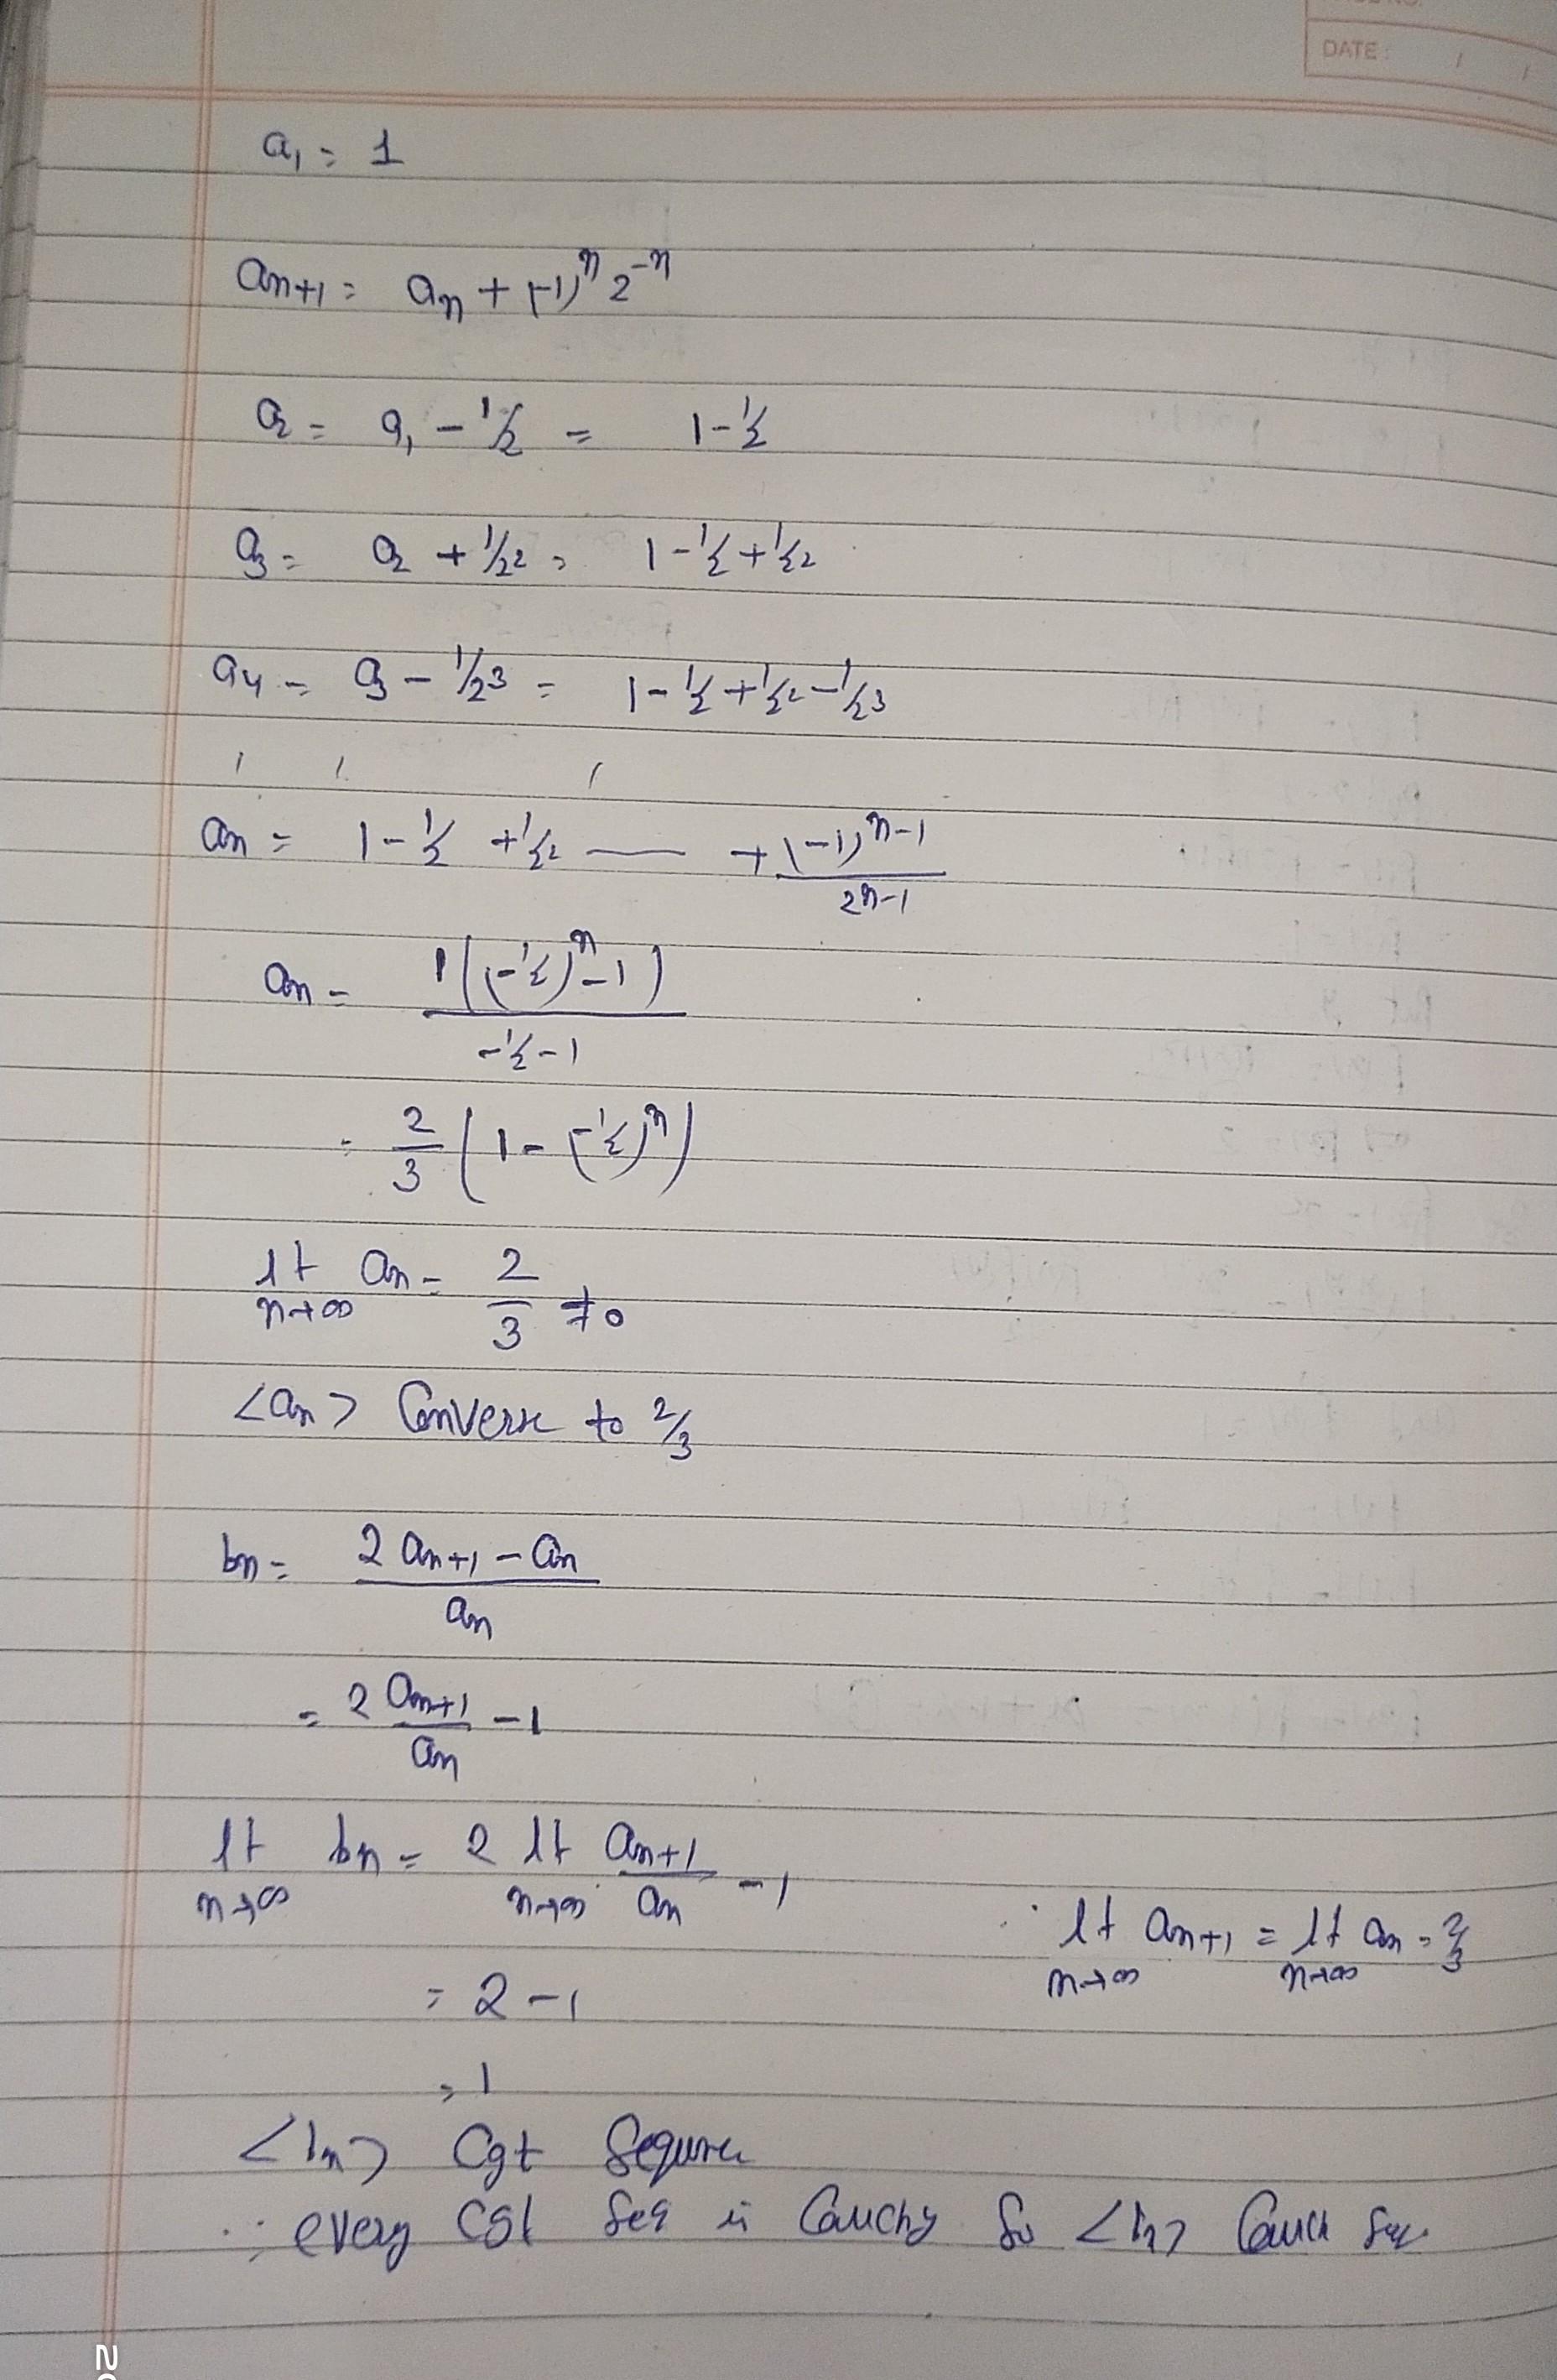 DATE : / /
a₁ = 1
aₙ₊₁ = aₙ + (-1)ⁿ 2⁻ⁿ
a₂ = a₁ - 1/2 = 1 - 1/2
a₃ = a₂ + 1/2² = 1 - 1/2 + 1/2²
a₄ = a₃ - 1/2³ = 1 - 1/2 + 1/2² - 1/2³
aₙ = 1 - 1/2 + 1/2² — + (-1)ⁿ⁻¹/2ⁿ⁻¹
aₙ = 1((-1/2)ⁿ - 1)/(-1/2 - 1)
= 2/3 (1 - (-1/2)ⁿ)
lt n→∞ aₙ = 2/3 ≠ 0
<aₙ> Converse to 2/3
bₙ = (2aₙ₊₁ - aₙ)/aₙ
= 2 aₙ₊₁/aₙ - 1
lt n→∞ bₙ = 2 lt n→∞ aₙ₊₁/aₙ - 1
∵ lt n→∞ aₙ₊₁ = lt n→∞ aₙ = 2/3
= 2 - 1
= 1
<bₙ> Cgt
∵ every Cgt Seq is Cauchy So <bₙ>